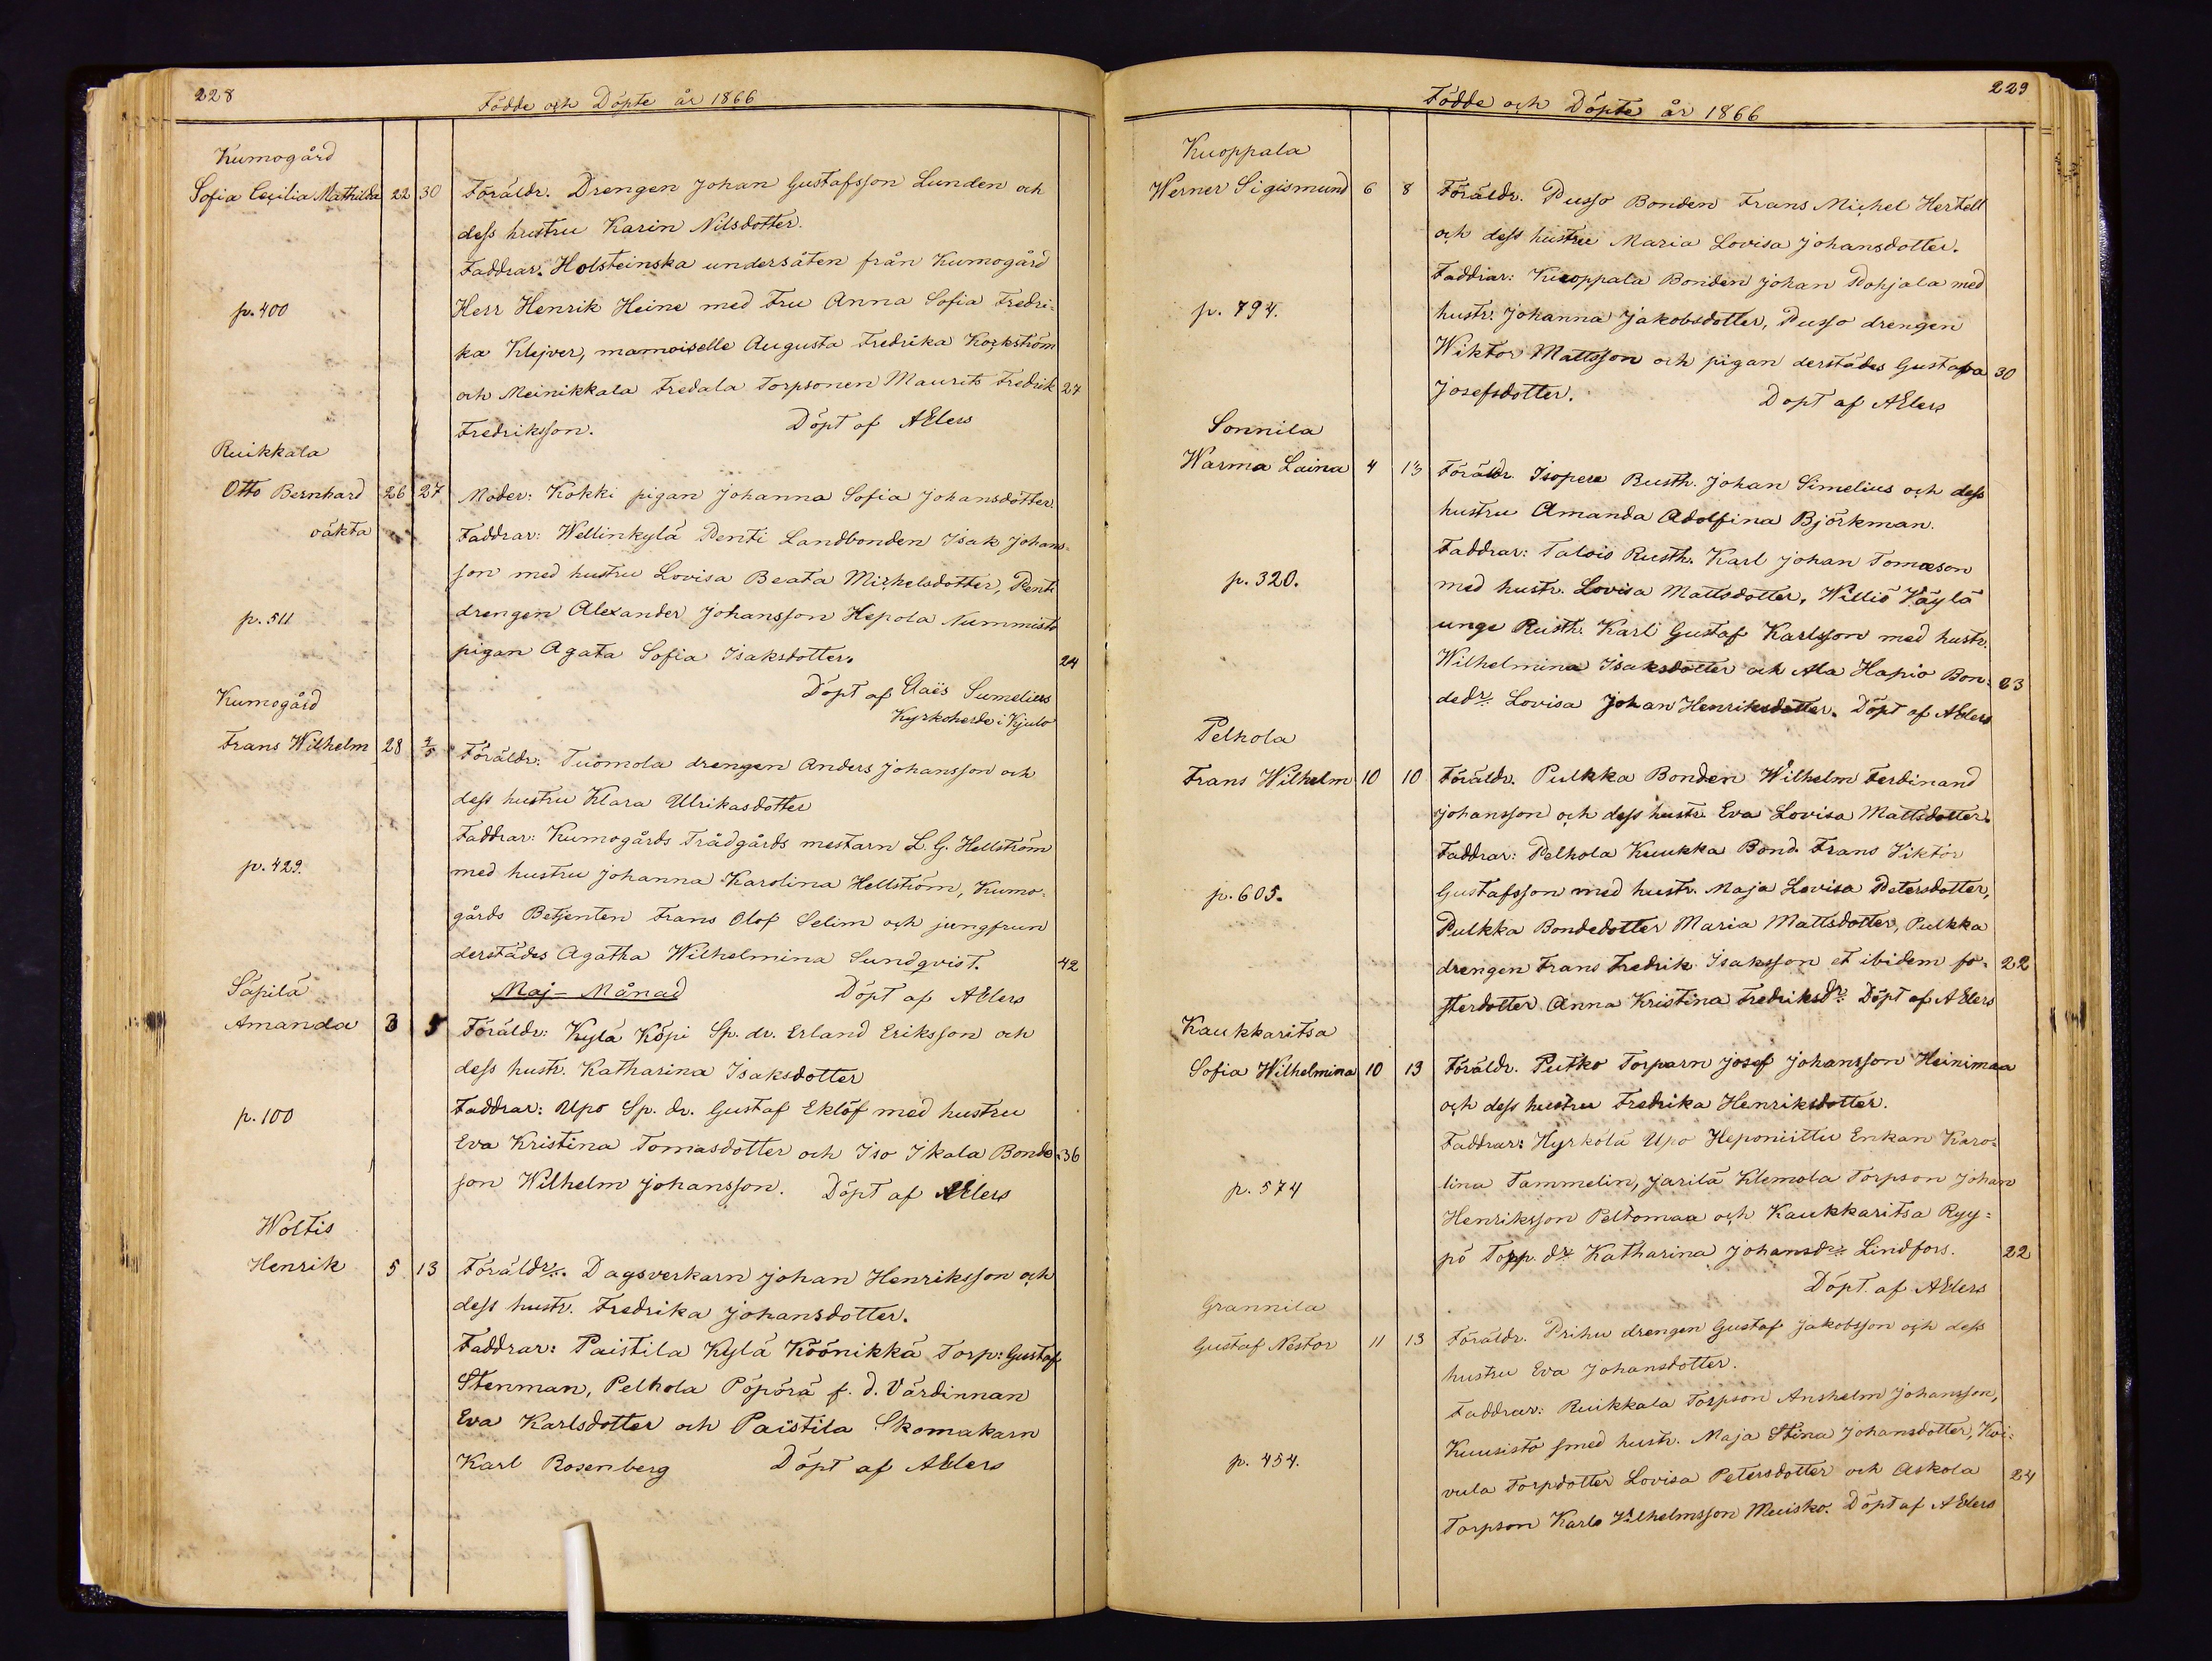 228
Födde och Döpte år 1866
Kumogård
Sofia Cecilia Mathilda 22 30 Föräldr. Drengen Johan Gustafsson Lunden och
dess hustru Karin Nilsdotter.
Faddrar. Holsteinska undersåten från Kumogård
p. 400 Herr Henrik Heine med Fru Anna Sofia Fredri-
ka Klejver, mamoiselle Augusta Fredrika Korkström
och Meinikkala Fredala Torpsonen Maurits Fredrik 27
Fredriksson. Döpt af AElers
Ruikkala
Otto Bernhard 26 27 Moder: Kokki pigan Johanna Sofia Johansdotter.
oäkta Faddrar: Wellinkylä Penti Landbonden Isak Johans-
son med hustru Lovisa Beata Michelsdotter, Penti
p. 511 drengen Alexander Johansson Hepola Nummisto
pigan Agata Sofia Isaksdotter. 24
Döpt af Claës Sumelius
Kyrkoherde i Kjulo
Kumogård
Frans Wilhelm 28 4/5 Föräldr: Tuomola drengen Anders Johansson och
dess hustru Klara Ulrikasdotter
Faddrar: Kumogårds Trädgårds mestarn L. G. Hellström
p. 429. med hustru Johanna Karolina Hellström, Kumo-
gårds Betjenten Frans Olof Selim och jungfrun
derstädes Agatha Wilhelmina Sundqvist. 42
Maj-Månad Döpt af AElers
Säpilä
Amanda 3 5 Föräldr: Kylä Köpi Sp. dr. Erland Eriksson och
dess hustr. Katharina Isaksdotter
Faddrar: Upo Sp. dr. Gustaf Eklöf med hustru
p. 100 Eva Kristina Tomasdotter och Iso Ikala Bonde- 36
son Wilhelm Johansson. Döpt af AElers
Woltis
Henrik 5 13 Föräldr. Dagsverkarn Johan Henriksson och
dess hustr. Fredrika Johansdotter.
Faddrar: Paistila Kylä Köönikkä Torp: Gustaf
Stenman, Pelhola Pöpörä f. d. Värdinnan
Eva Karlsdotter och Paistila Skomakarn
Karl Rosenberg Döpt af AElers
229
Födde och Döpte år 1866
Kuoppala
Werner Sigismund 6 8 Föräldr. Pusso Bonden Frans Michel Hertell
och dess hustru Maria Lovisa Johansdotter.
Faddrar: Kuoppala Bonden Johan Pohjala med
p. 794. hustr. Johanna Jakobsdotter, Pusso drengen
Wiktor Mattsson och pigan derstädes Gustafva 30
Josefsdotter. Döpt af AElers
Sonnila
Warma Laina 4 13 Föräldr. Isopere Rusth. Johan Simelius och dess
hustru Amanda Adolfina Björkman.
Faddrar: Talois Rusth. Karl Johan Tomæson
p. 320. med hustr. Lovisa Mattsdotter, Willio Wäylä
unge Rusth. Karl Gustaf Karlsson med hustr.
Wilhelmina Isaksdotter och Ala Hapio Bon- 23
dedr. Lovisa Johan Henriksdotter. Döpt af AElers
Pelhola
Frans Wilhelm 10 10 Föräldr. Pulkka Bonden Wilhelm Ferdinand
Johansson och dess hustr. Eva Lovisa Mattsdotter.
Faddrar: Pelhola Kuukka Bond. Frans Viktor
p. 605. Gustafsson med hustr. Maja Lovisa Petersdotter,
Pulkka Bondedotter Maria Mattsdotter, Pulkka
drengen Frans Fredrik Isaksson et ibidem fo- 22
sterdotter Anna Kristina Fredriksdr. Döpt af AElers
Kaukkaritsa
Sofia Wilhelmina 10 13 Föräldr. Putko Torparn Josef Johansson Heinimaa
och dess hustru Fredrika Henriksdotter.
Faddrar: Hyrkölä Upo Heponiittu Enkan Karo-
p. 574 lina Tammelin, Jarilä Klemola Torpson Johan
Henriksson Peltomaa och Kaukkaritsa Ryy-
pö Torp. dr Katharina Johansdr. Lindfors. 22
Döpt af AElers
Grannila
Gustaf Nestor 11 13 Föräldr. Prihu drengen Gustaf Jakobsson och dess
hustru Eva Johansdotter.
Faddrar: Ruikkala Torpson Anshelm Johansson,
p. 454. Kuusisto smed hustr. Maja Stina Johansdotter, Koi-
vula Torpdotter Lovisa Petersdotter och Askola 24
Torpson Karlo Vilhelmsson Muisko. Döpt af AElers